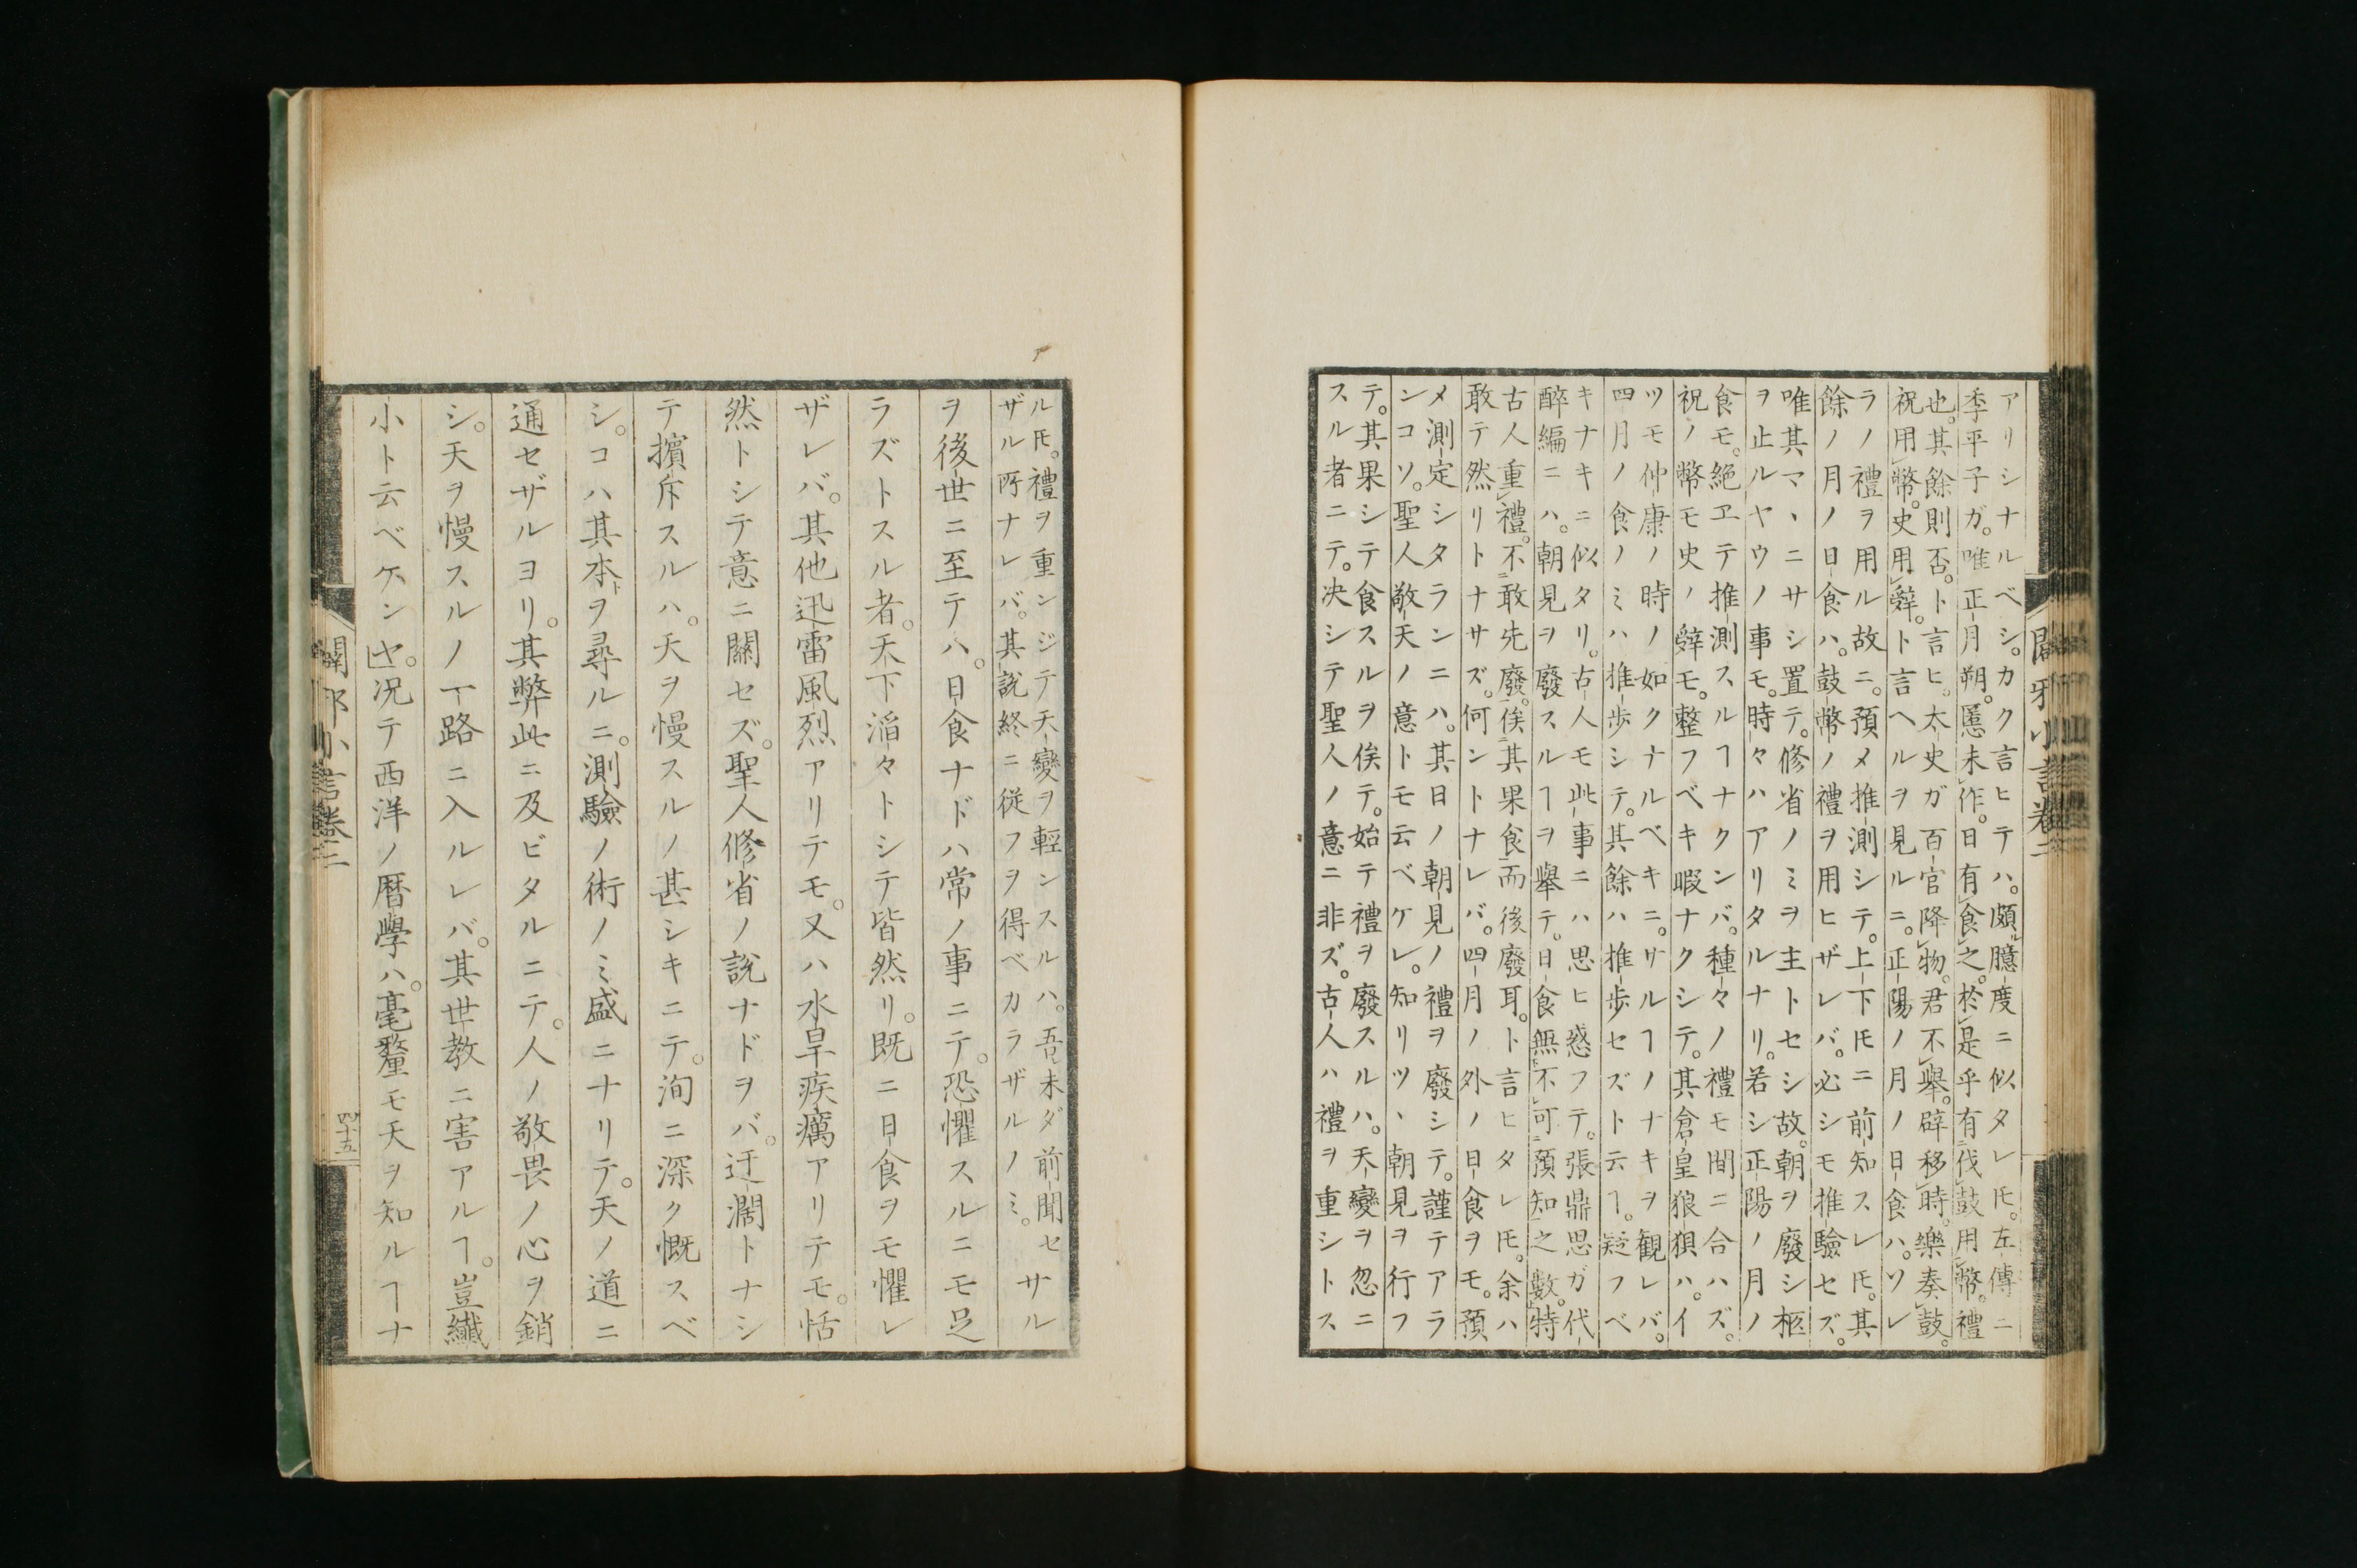 闢邪小言卷二
アリシナルベシ。カク言ヒテハ。頗ル臆度ニ似タレ𪜈。左傳ニ
季平子ガ。唯正月朔。慝未作。日有食之。於是乎有伐鼓用幣。禮
也。其餘則否。ト言ヒ。太史ガ百官降物。君不舉。辟移時。樂奏鼓。
祝用幣。史用辭。ト言ヘルヲ見ルニ。正陽ノ月ノ日食ハ。ソレ
ラノ禮ヲ用ル故ニ。預メ推測シテ。上下𪜈ニ前知スレ𪜈。其
餘ノ月ノ日食ハ。鼓幣ノ禮ヲ用ヒザレバ。必シモ推驗セズ。
唯其マヽニサシ置テ。修省ノミヲ主トセシ故。朝ヲ廢シ柩
ヲ止ルヤウノ事モ。時々ハアリタルナリ。若シ正陽ノ月ノ
食モ。絶エテ推測スルヿナクンバ。種々ノ禮モ間ニ合ハズ。
祝ノ幣モ史ノ辭モ。整フベキ暇ナクシテ。其倉皇狼狽ハ。イ
ツモ仲康ノ時ノ如クナルベキニ。サルヿノナキヲ観レバ。
四月ノ食ノミハ推步シテ。其餘ハ推步セズト云ヿ。疑フベ
キナキニ似タリ。古人モ此事ニハ思ヒ惑フテ。張鼎思ガ代
醉編ニハ。朝見ヲ廢スルヿヲ舉テ。日食無不可預知之數。特
古人重禮。不敢先廢。俟其果食而後廢耳。ト言ヒタレ𪜈。余ハ
敢テ然リトナサズ。何ントナレバ。四月ノ外ノ日食ヲモ。預
メ測定シタランニハ。其日ノ朝見ノ禮ヲ廢シテ。謹テアラ
ンコソ。聖人敬天ノ意トモ云ベケレ。知リツヽ朝見ヲ行フ
テ。其果シテ食スルヲ俟テ。始テ禮ヲ廢スルハ。天變ヲ忽ニ
スル者ニテ。决シテ聖人ノ意ニ非ズ。古人ハ禮ヲ重シトス
ル𪜈。禮ヲ重ンジテ天變ヲ輕ンスルハ。吾未ダ前聞セサル
ザル所ナレバ。其説終ニ従フヲ得ベカラザルノミ。
ヲ後世ニ至テハ。日食ナドハ常ノ事ニテ。恐懼スルニモ足
ラズトスル者。天下滔々トシテ皆然リ。既ニ日食ヲモ懼レ
ザレバ。其他迅雷風烈アリテモ。又ハ水旱疾癘アリテモ。恬
然トシテ意ニ關セズ。聖人修省ノ説ナドヲバ。迂濶トナシ
テ擯斥スルハ。天ヲ慢スルノ甚シキニテ。洵ニ深ク慨スベ
シ。コハ其本ヲ尋ルニ。測驗ノ術ノミ盛ニナリテ。天ノ道ニ
通セザルヨリ。其弊此ニ及ビタルニテ。人ノ敬畏ノ心ヲ銷
シ。天ヲ慢スルノ一路ニ入ルレバ。其世教ニ害アルヿ。豈纖
小ト云ベケンヤ。况テ西洋ノ暦學ハ。毫釐モ天ヲ知ルヿナ
闢邪小言卷二
四十五